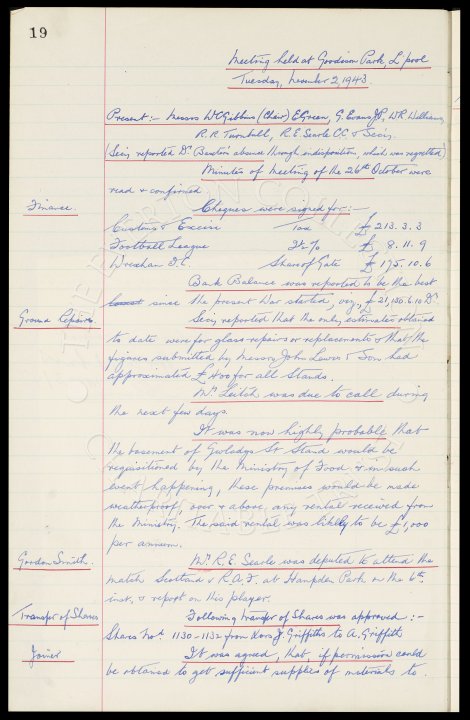 19
Meeting held at Goodison Park, L'pool
Tuesday, November 2, 1943.
Present:- Messrs W.C. Gibbins (Chair) E. Green, G. Evans J.P., W.R. Williams,
R.R. Turnbull, R.E. Searle C.C. & Secy.
(Secy reported Dr Baxter's absence through indisposition, which was regretted)
Minutes of Meeting of the 26th October were
read & confirmed.
Finance. Cheques were signed for:-
Customs & Excise Tax £ 213. 3. 3
Football League £ 8. 11. 9
Wrexham F.C. Share of Gate £ 195. 10. 6
Bank Balance was reported to be the best
since the present War started, vizy, £21,150. 6. 10 Dr
Ground Repairs Secy reported that the only estimates obtained
to date were for glass repairs or replacements & that the
figures submitted by Messrs John Lewis & Son had
approximated £400 for all Stands.
Mr Leitch was due to call during
the next few days.
It was now highly probable that
the basement of Gwladys St Stand would be
requisitioned by the Ministry of Food & in such
event happening, these premises would be made
weatherproof, over & above any rental received from
the Ministry. The said rental was likely to be £1,000
per annum.
Gordon Smith. Mr R.E. Searle was deputed to attend the
match Scotland v R.A.F. at Hampden Park on the 6th
inst, & report on this player.
Transfer of Shares Following transfer of Shares was approved:-
Shares Nos 1130-1132 from J. Griffiths to A. Griffith
Joiner It was agreed, that, if permission could
be obtained to get sufficient supplies of materials to